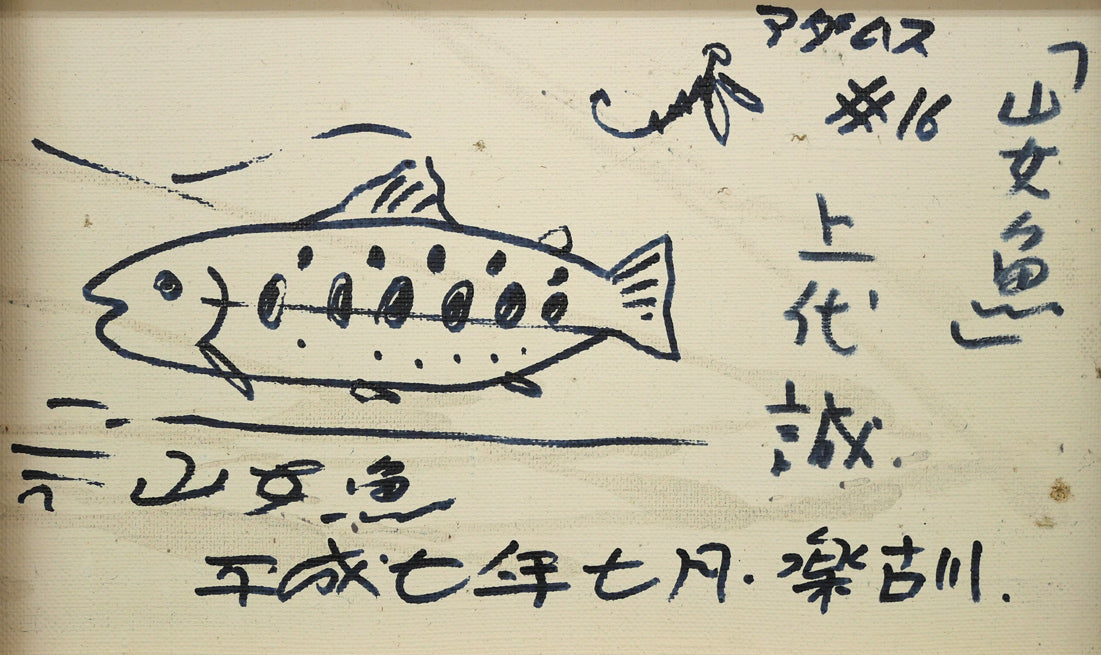 「山女魚」
アダムス
#16
上代誠.
山女魚
平成七年七月. 楽古川.